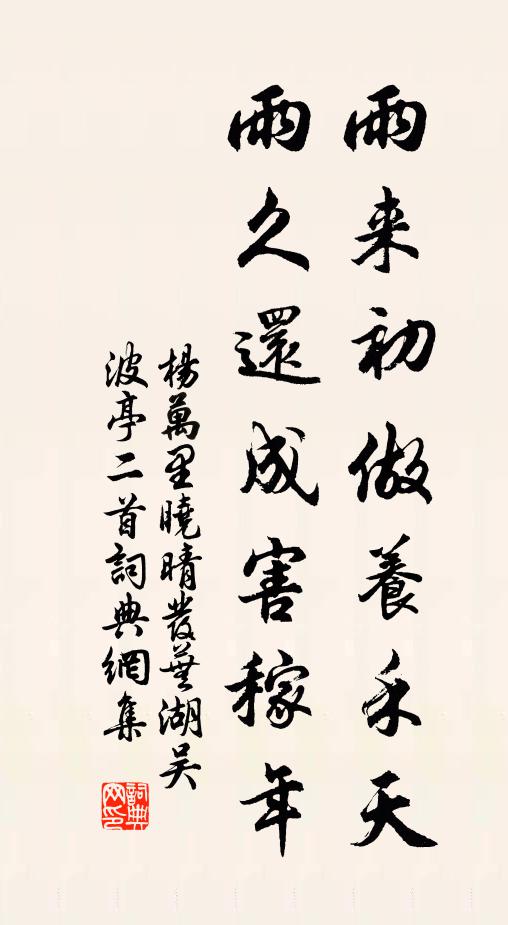 雨来初做養禾天
雨久還成害稼年
楊萬里曉晴發蕪湖吴
波亭二首詞典網集
詞典
网印